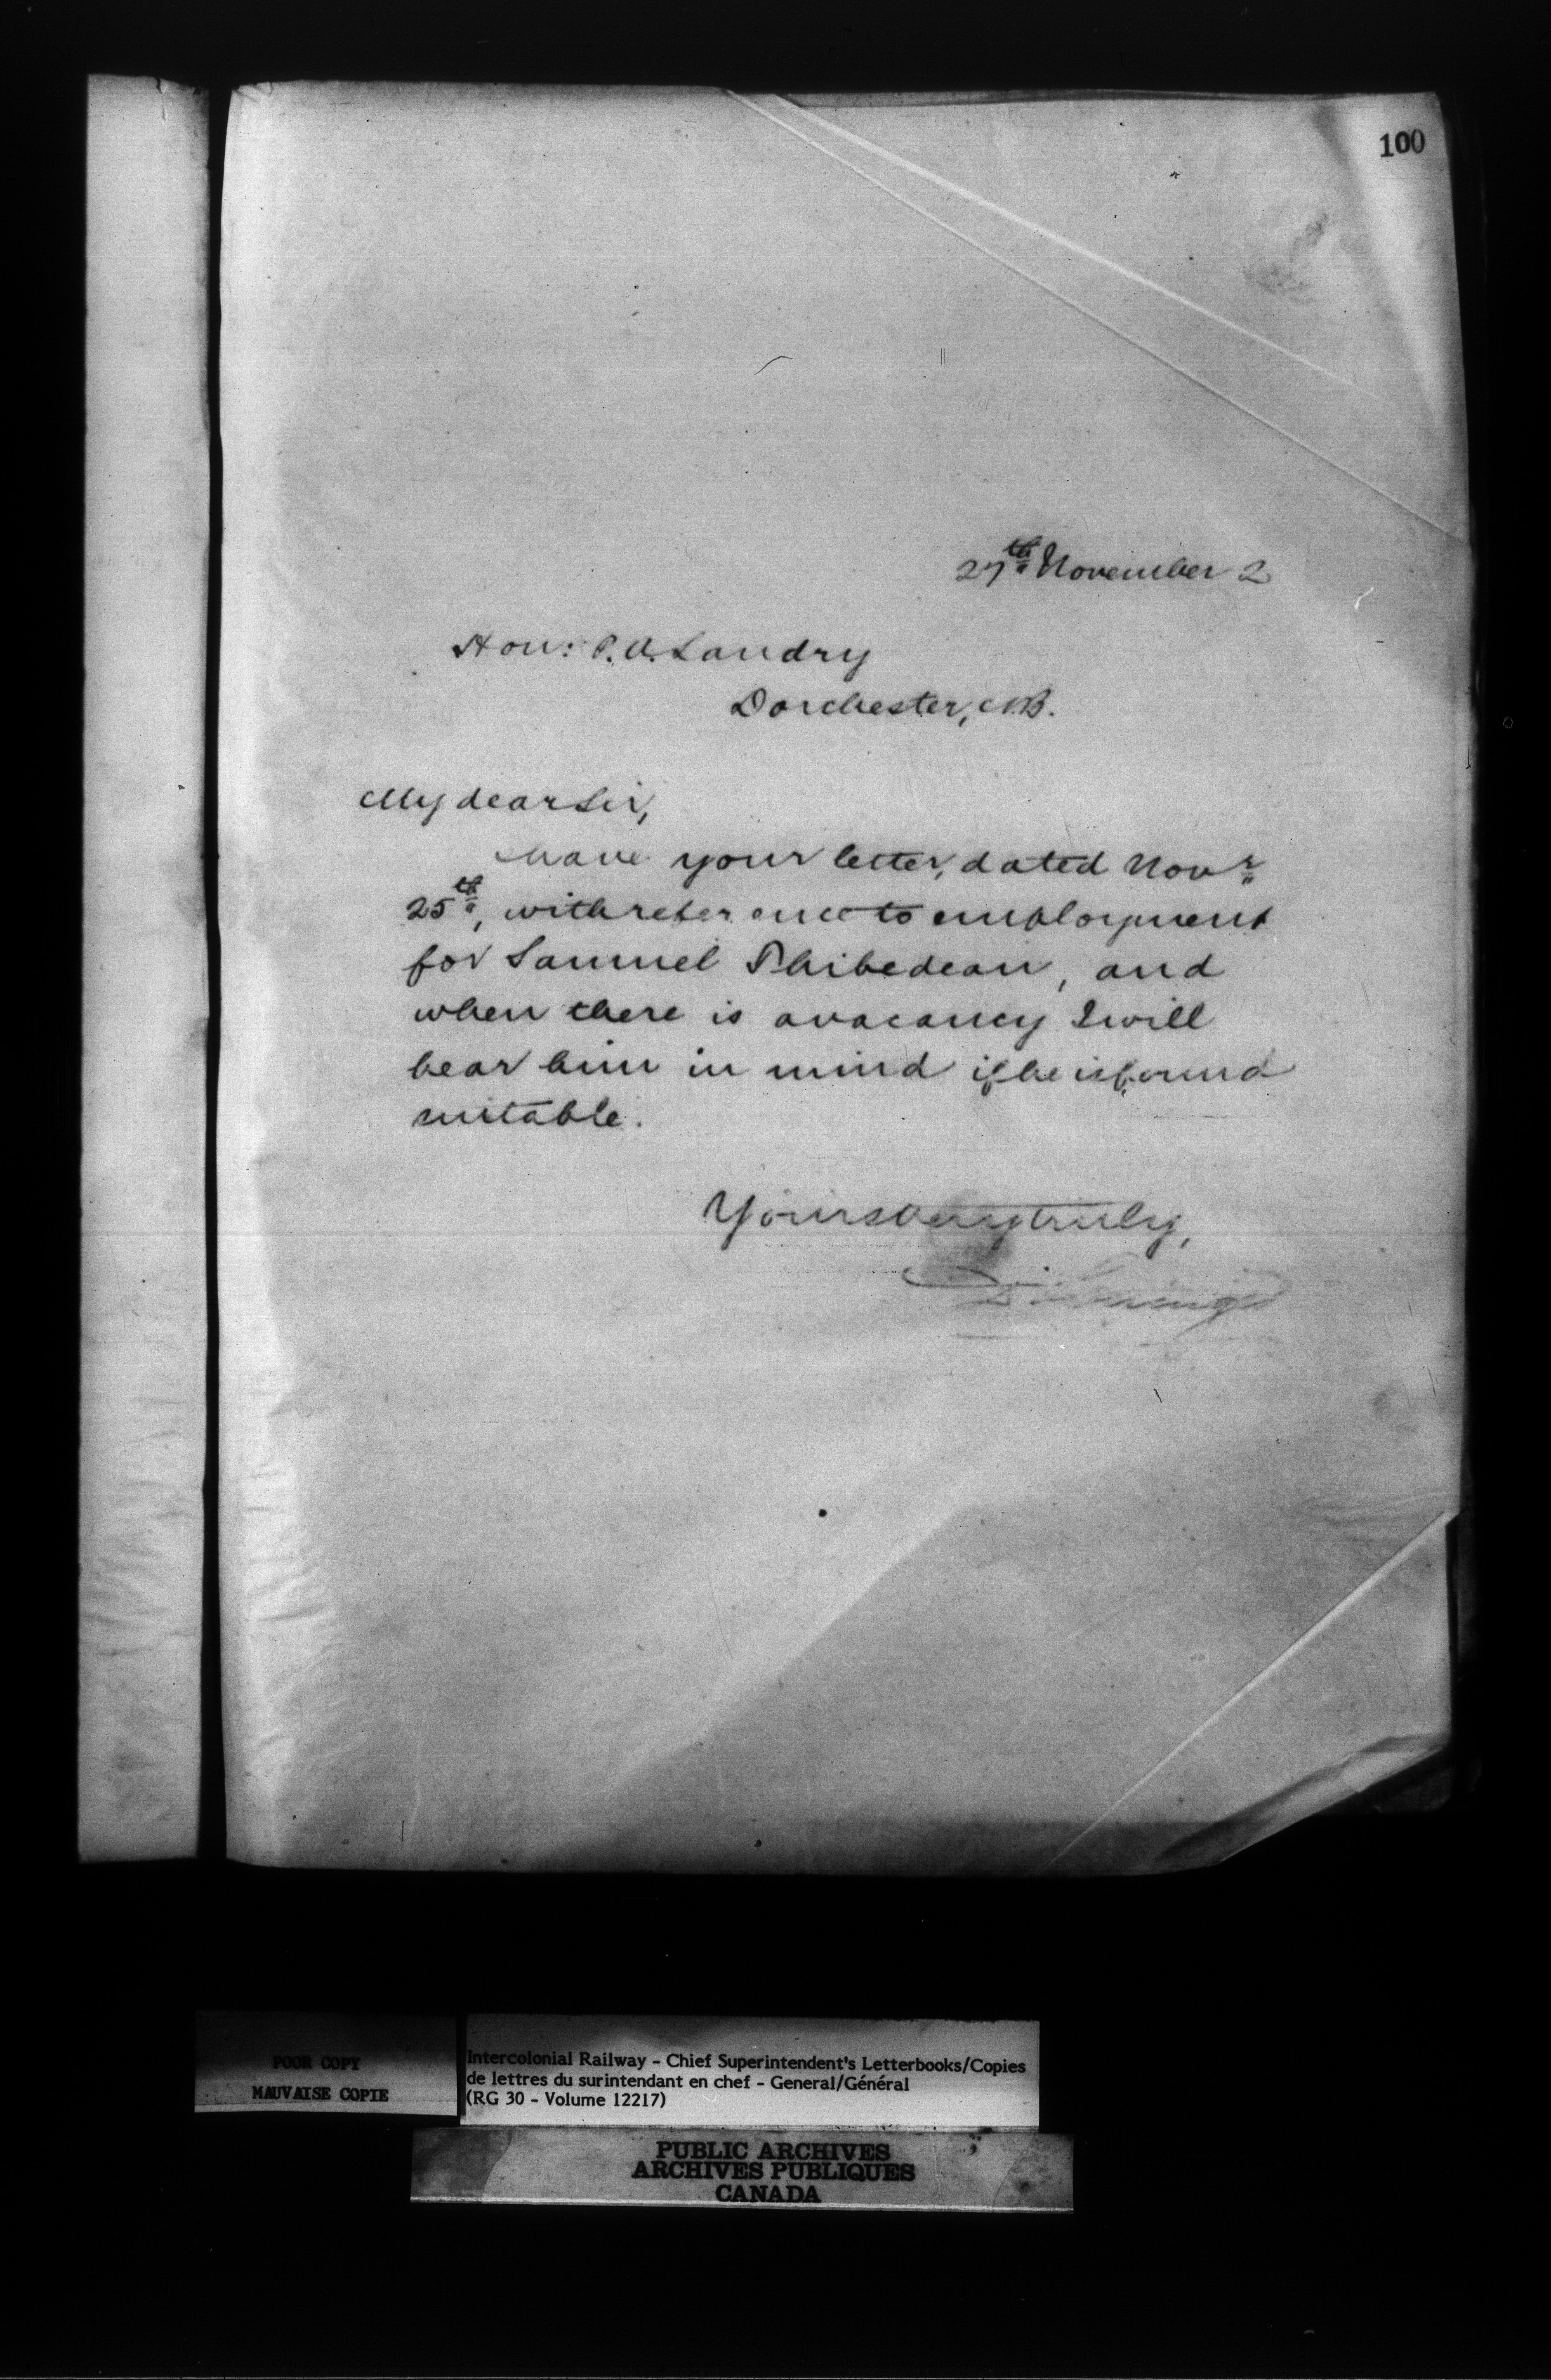 100
27th November 2
Hon: P. A. Landry
Dorchester, N.B.
My dear Sir,
I have your letter, dated Novr
25th, with reference to employment
for Samuel Thibedeau, and
when there is a vacancy I will
bear him in mind if he is found
suitable.
Yours very truly,
POOR COPY
MAUVAISE COPIE
Intercolonial Railway - Chief Superintendent's Letterbooks/Copies
de lettres du surintendant en chef - General/Général
(RG 30 - Volume 12217)
PUBLIC ARCHIVES
ARCHIVES PUBLIQUES
CANADA